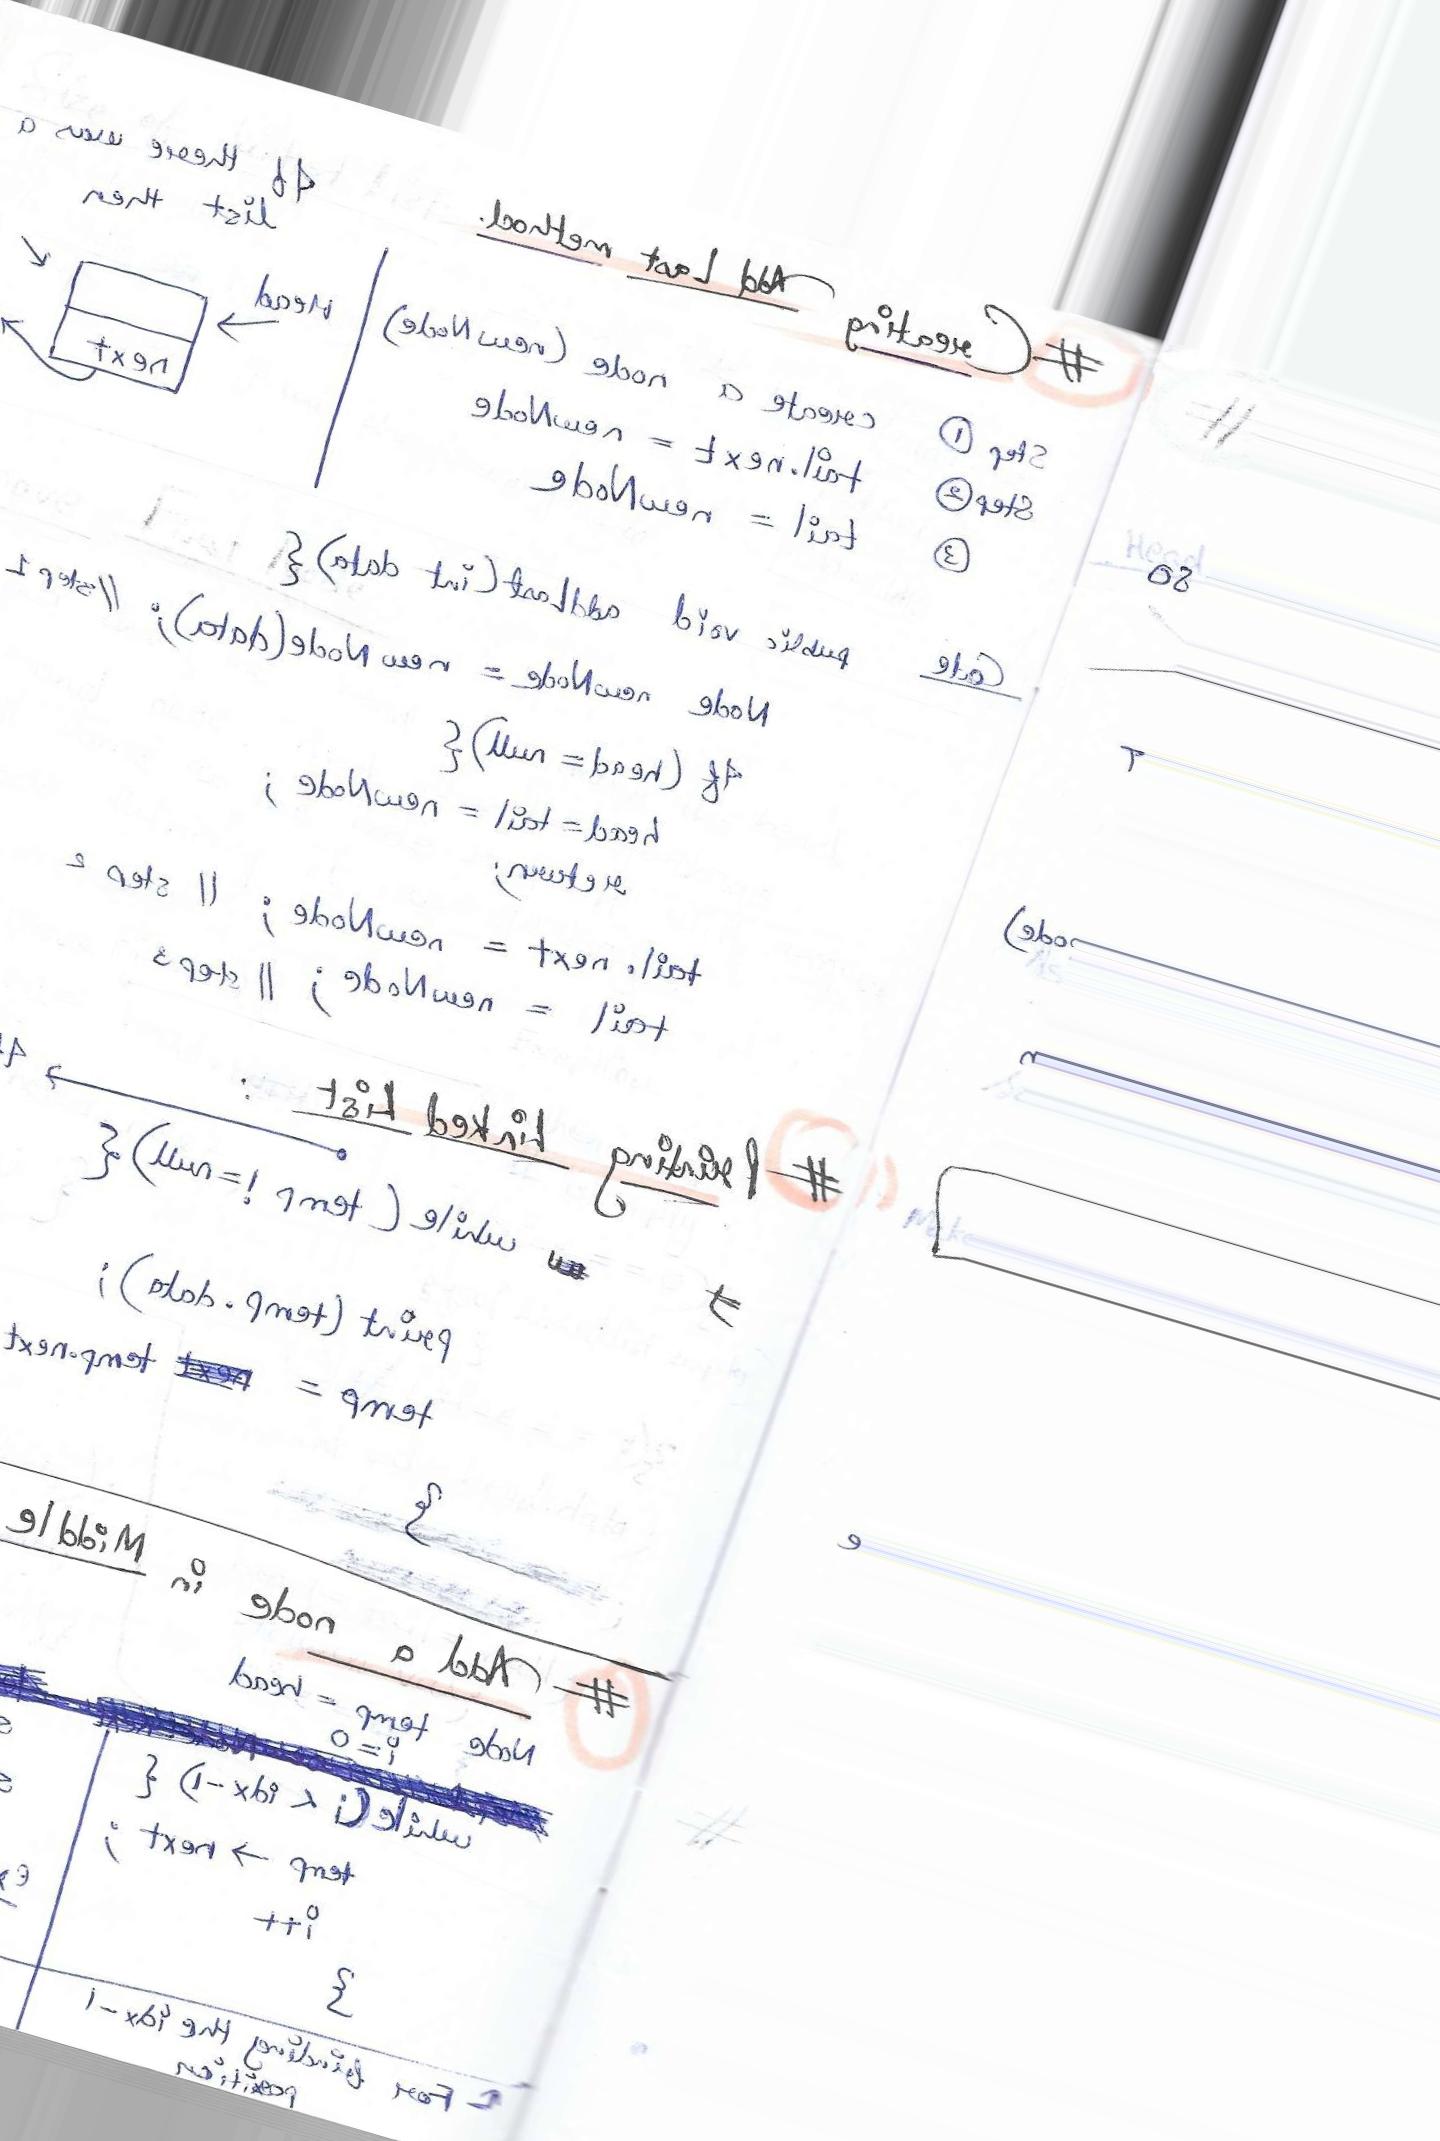 # Creating Add Last method.
Step ① create a node (newNode)
Step ② tail.next = newNode
③ tail = newNode
If there was a
list then
Head
next
Code public void addLast(int data) {
Node newNode = new Node(data); //step 1
if (head = null) {
head = tail = newNode ;
return;
tail.next = newNode ; // step 2
tail = newNode ; // step 3
# Printing Linked List :
while ( temp != null) {
print (temp.data) ;
temp = temp.next
}
# Add a node in Middle
Node temp = head
i = 0
while(i < idx-1) {
temp → next ;
i++
}
For finding the idx-1
position
So
node)